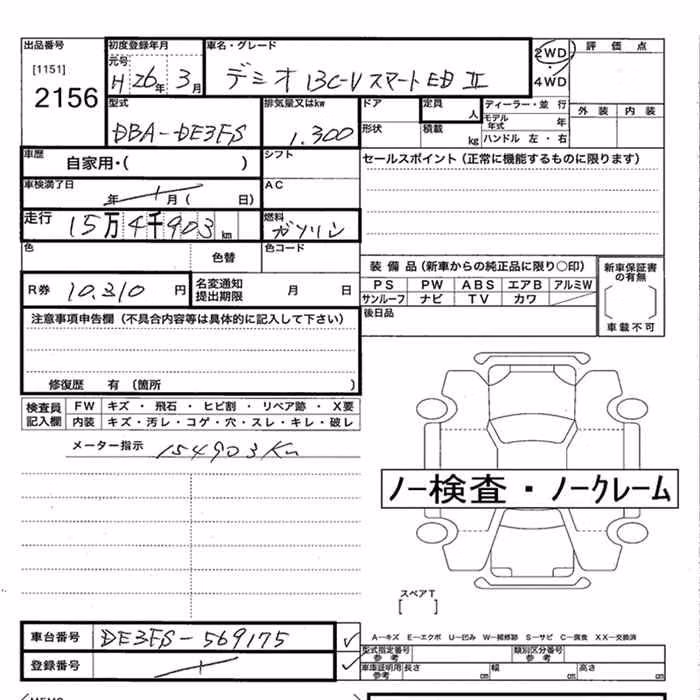 出品番号 初度登録年月 車名・グレード 2WD 評価点
[1151] 元号 H26年3月 デミオ 13C-V スマートED II ・ 4WD
2156
型式 排気量又はkw ドア 定員 人 ディーラー・並行 外装 内装
DBA-DE3FS 1.300 形状 積載 kg モデル年式 年
ハンドル 左・右
車歴 自家用・( ) シフト セールスポイント(正常に機能するものに限ります)
車検満了日 年 月( 日) AC
走行 15万4千903km 燃料 ガソリン
色 色替 色コード
装備品(新車からの純正品に限り○印) 新車保証書の有無
R券 10.310円 名変通知提出期限 月 日 PS PW ABS エアB アルミW
サンルーフ ナビ TV カワ
注意事項申告欄(不具合内容等は具体的に記入して下さい) 後日品 車載不可
修復歴 有(箇所 )
検査員記入欄 FW キズ・飛石・ヒビ割・リペア跡・X要
内装 キズ・汚レ・コゲ・穴・スレ・キレ・破レ
メーター指示 154903Km
ノー検査・ノークレーム
スペアT
[ ]
車台番号 DE3FS-569175 A-キズ E-エクボ U-凹み W-補修跡 S-サビ C-腐食 XX-交換済
型式指定番号 参考 類別区分番号 参考
登録番号 車庫証明用 参考 長さ cm 幅 cm 高さ cm
MEMO